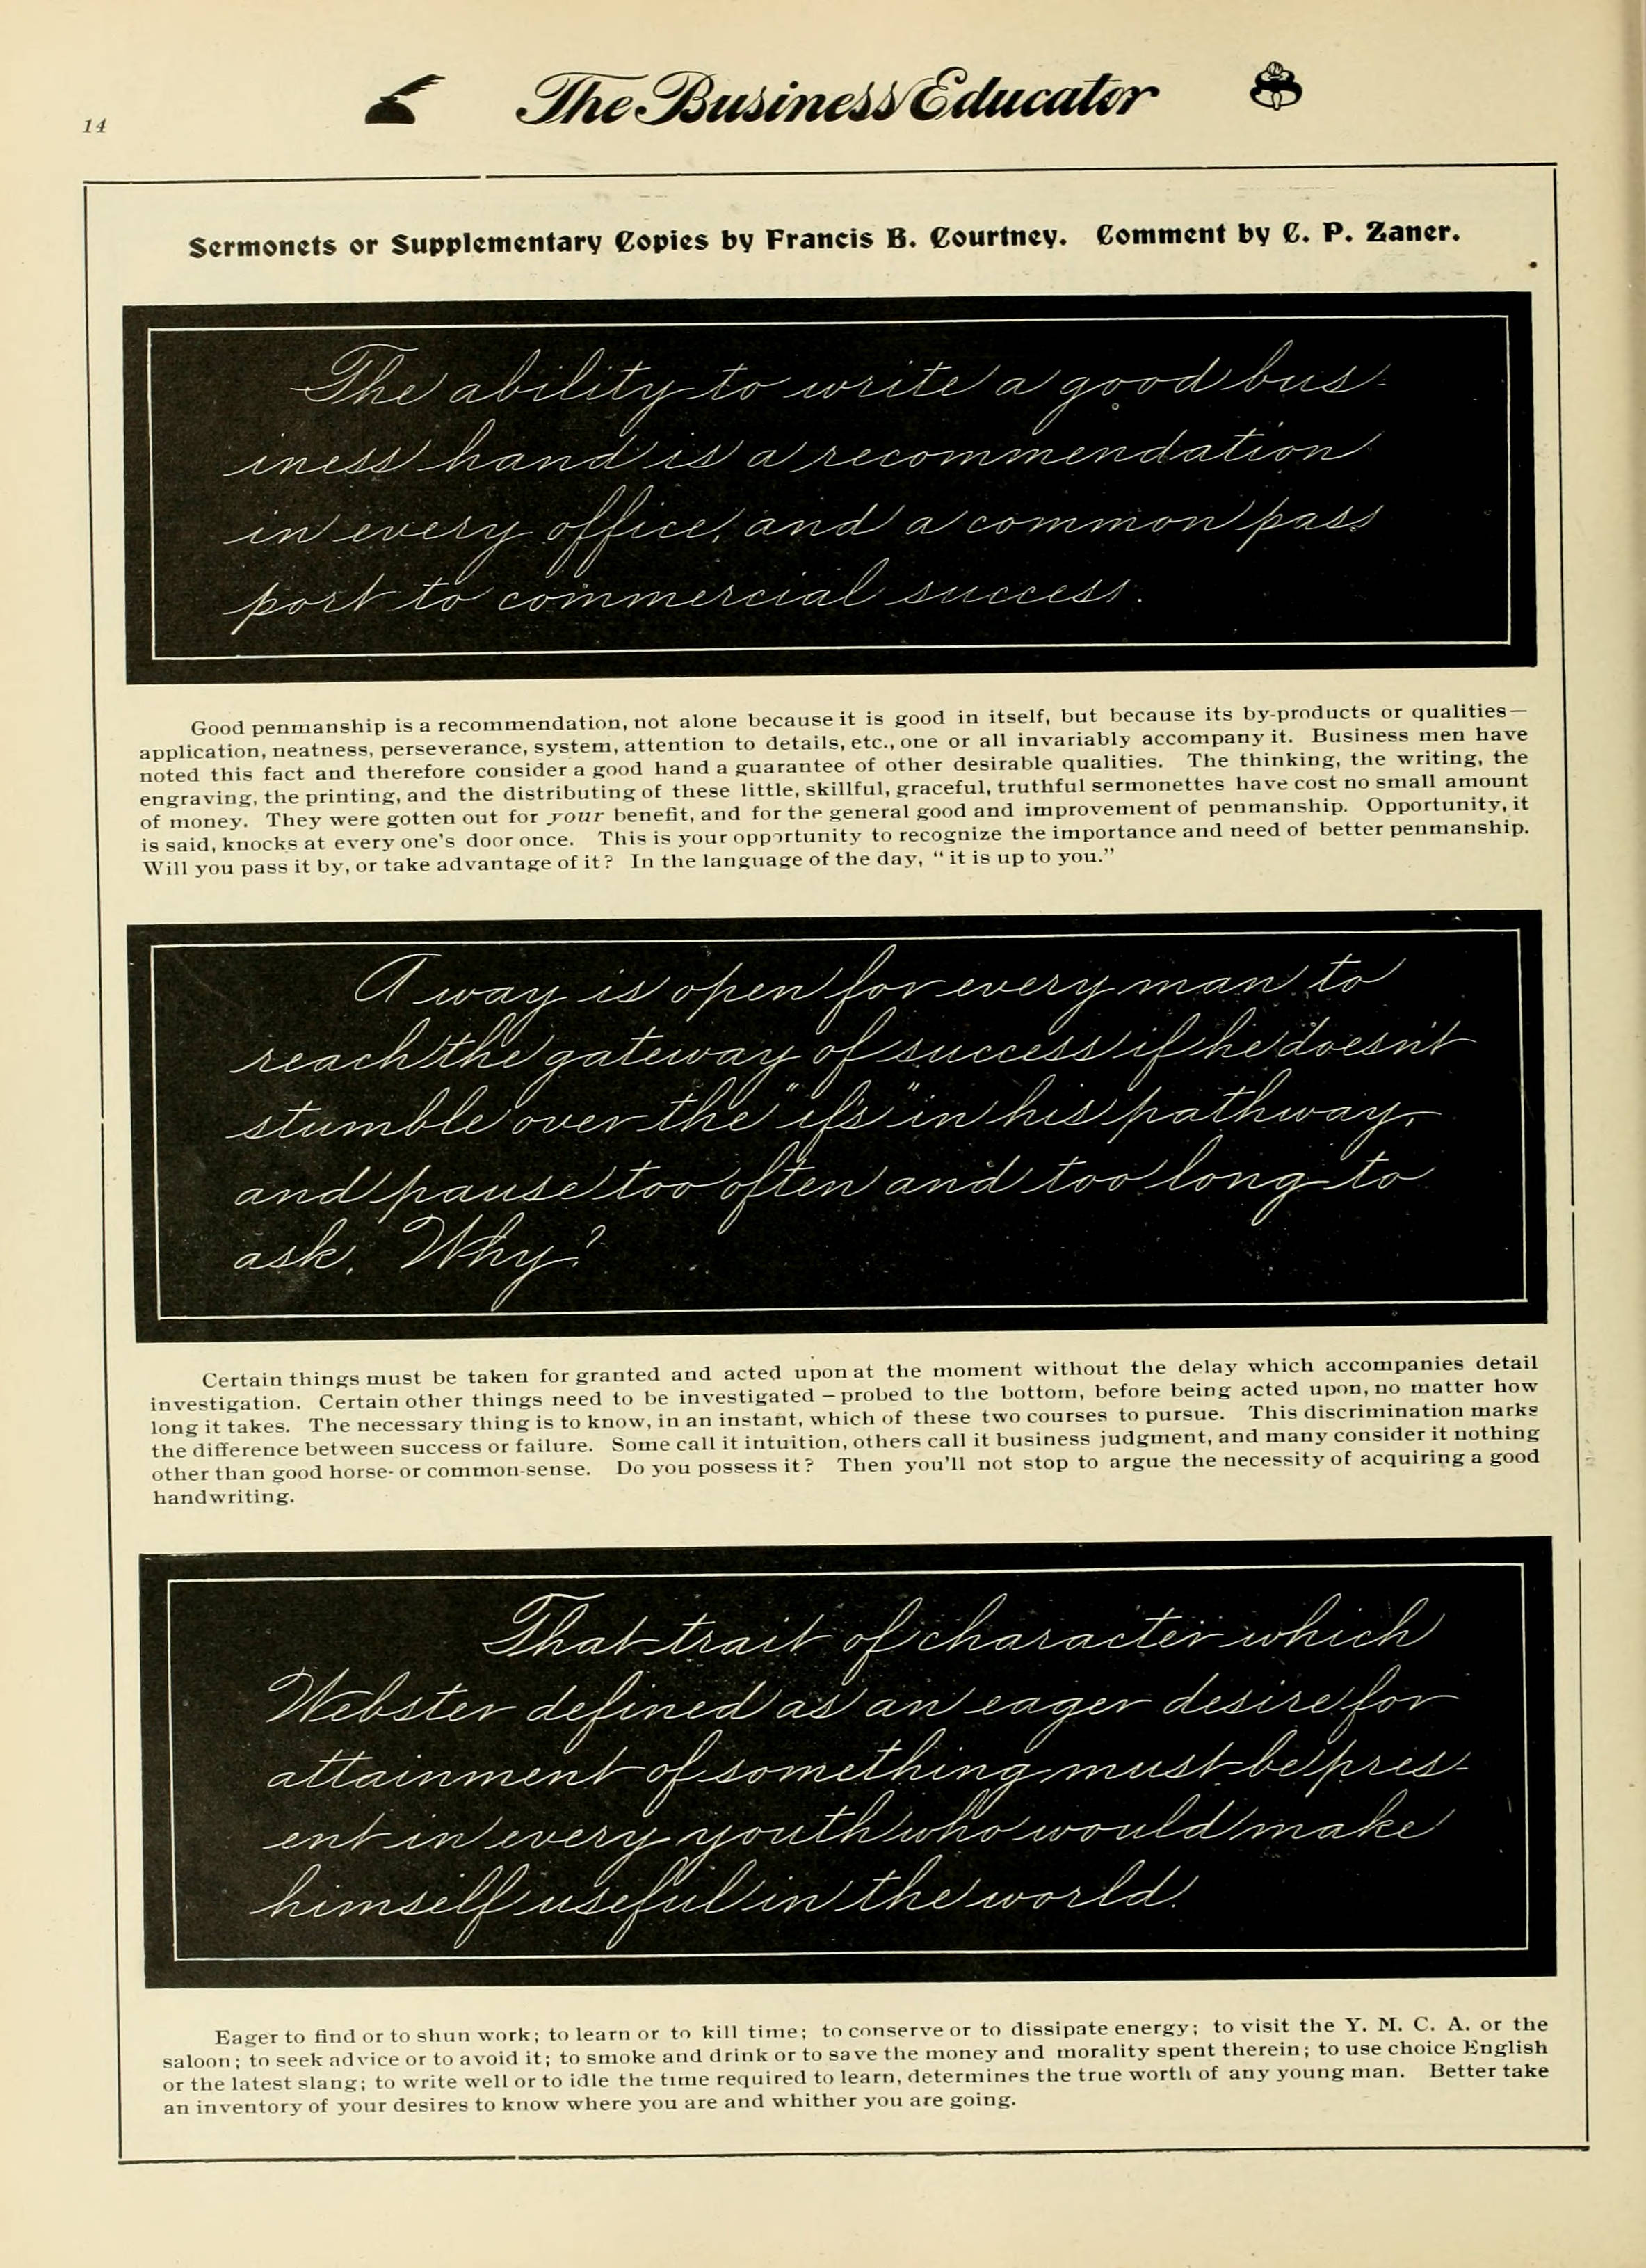 14
The Business Educator
Sermonets or Supplementary Copies by Francis B. Courtney. Comment by C. P. Zaner.
The ability to write a good bus-
iness hand is a recommendation
in every office, and a common pass
port to commercial success.
Good penmanship is a recommendation, not alone because it is good in itself, but because its by-products or qualities—
application, neatness, perseverance, system, attention to details, etc., one or all invariably accompany it. Business men have
noted this fact and therefore consider a good hand a guarantee of other desirable qualities. The thinking, the writing, the
engraving, the printing, and the distributing of these little, skillful, graceful, truthful sermonettes have cost no small amount
of money. They were gotten out for your benefit, and for the general good and improvement of penmanship. Opportunity, it
is said, knocks at every one's door once. This is your opportunity to recognize the importance and need of better penmanship.
Will you pass it by, or take advantage of it? In the language of the day, "it is up to you."
A way is open for every man to
reach the gateway of success if he doesn't
stumble over the "ifs" in his pathway,
and pause too often and too long to
ask, Why?
Certain things must be taken for granted and acted upon at the moment without the delay which accompanies detail
investigation. Certain other things need to be investigated – probed to the bottom, before being acted upon, no matter how
long it takes. The necessary thing is to know, in an instant, which of these two courses to pursue. This discrimination marks
the difference between success or failure. Some call it intuition, others call it business judgment, and many consider it nothing
other than good horse- or common-sense. Do you possess it? Then you'll not stop to argue the necessity of acquiring a good
handwriting.
That trait of character which
Webster defined as an eager desire for
attainment of something must be pres-
ent in every youth who would make
himself useful in the world.
Eager to find or to shun work; to learn or to kill time; to conserve or to dissipate energy; to visit the Y. M. C. A. or the
saloon; to seek advice or to avoid it; to smoke and drink or to save the money and morality spent therein; to use choice English
or the latest slang; to write well or to idle the time required to learn, determines the true worth of any young man. Better take
an inventory of your desires to know where you are and whither you are going.